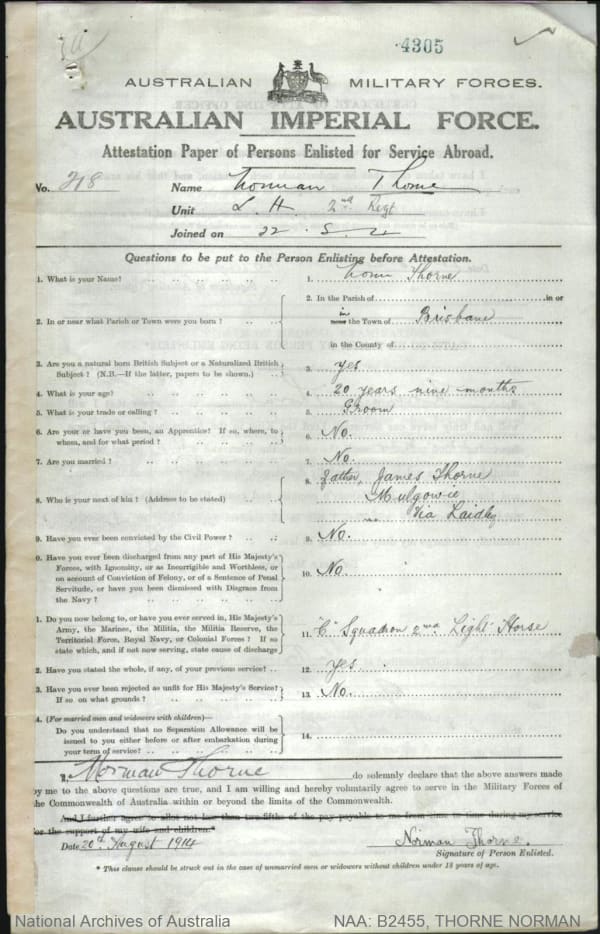 4305
AUSTRALIAN MILITARY FORCES.
AUSTRALIAN IMPERIAL FORCE.
Attestation Paper of Persons Enlisted for Service Abroad.
No. 218 Name Norman Thorne
Unit L. H. 2nd Regt
Joined on 22
Questions to be put to the Person Enlisting before Attestation.
1. What is your Name? 1. Thorne
2. In or near what Parish or Town were you born? 2. In the Parish of in or
in the Town of Brisbane
in the County of
3. Are you a natural born British Subject or a Naturalized British
Subject? (N.B.—If the latter, papers to be shown.) 3. yes
4. What is your age? 4. 20 years nine months
5. What is your trade or calling? 5. Groom
6. Are you or have you been, an Apprentice? If so, where, to
whom, and for what period? 6. No.
7. Are you married? 7. No.
8. Who is your next of kin? (Address to be stated) 8. Father, James Thorne
Mulgowie
Via Laidley
9. Have you ever been convicted by the Civil Power? 9. No.
0. Have you ever been discharged from any part of His Majesty's
Forces, with Ignominy, or as Incorrigible and Worthless, or
on account of Conviction of Felony, or of a Sentence of Penal
Servitude, or have you been Dismissed with Disgrace from
the Navy? 10. No
1. Do you now belong to, or have you ever served in, His Majesty's
Army, the Marines, the Militia, the Militia Reserve, the
Territorial Force, Royal Navy, or Colonial Forces? If so
state which, and if not now serving, state cause of discharge 11. "C" Squadron 2nd Light Horse
2. Have you stated the whole, if any, of your previous service? 12. yes
3. Have you ever been rejected as unfit for His Majesty's Service?
If so on what grounds? 13. No.
4. (For married men and widowers with children)—
Do you understand that no Separation Allowance will be
issued to you either before or after embarkation during
your term of service? 14.
I, Norman Thorne do solemnly declare that the above answers made
by me to the above questions are true, and I am willing and hereby voluntarily agree to serve in the Military Forces of
the Commonwealth of Australia within or beyond the limits of the Commonwealth.
And I further agree to allot not less than two fifths of the pay payable to me from time to time during my service
for the support of my wife and children.*
Date 20th August 1914 Norman Thorne.
Signature of Person Enlisted.
* This clause should be struck out in the case of unmarried men or widowers without children under 18 years of age.
National Archives of Australia NAA: B2455, THORNE NORMAN